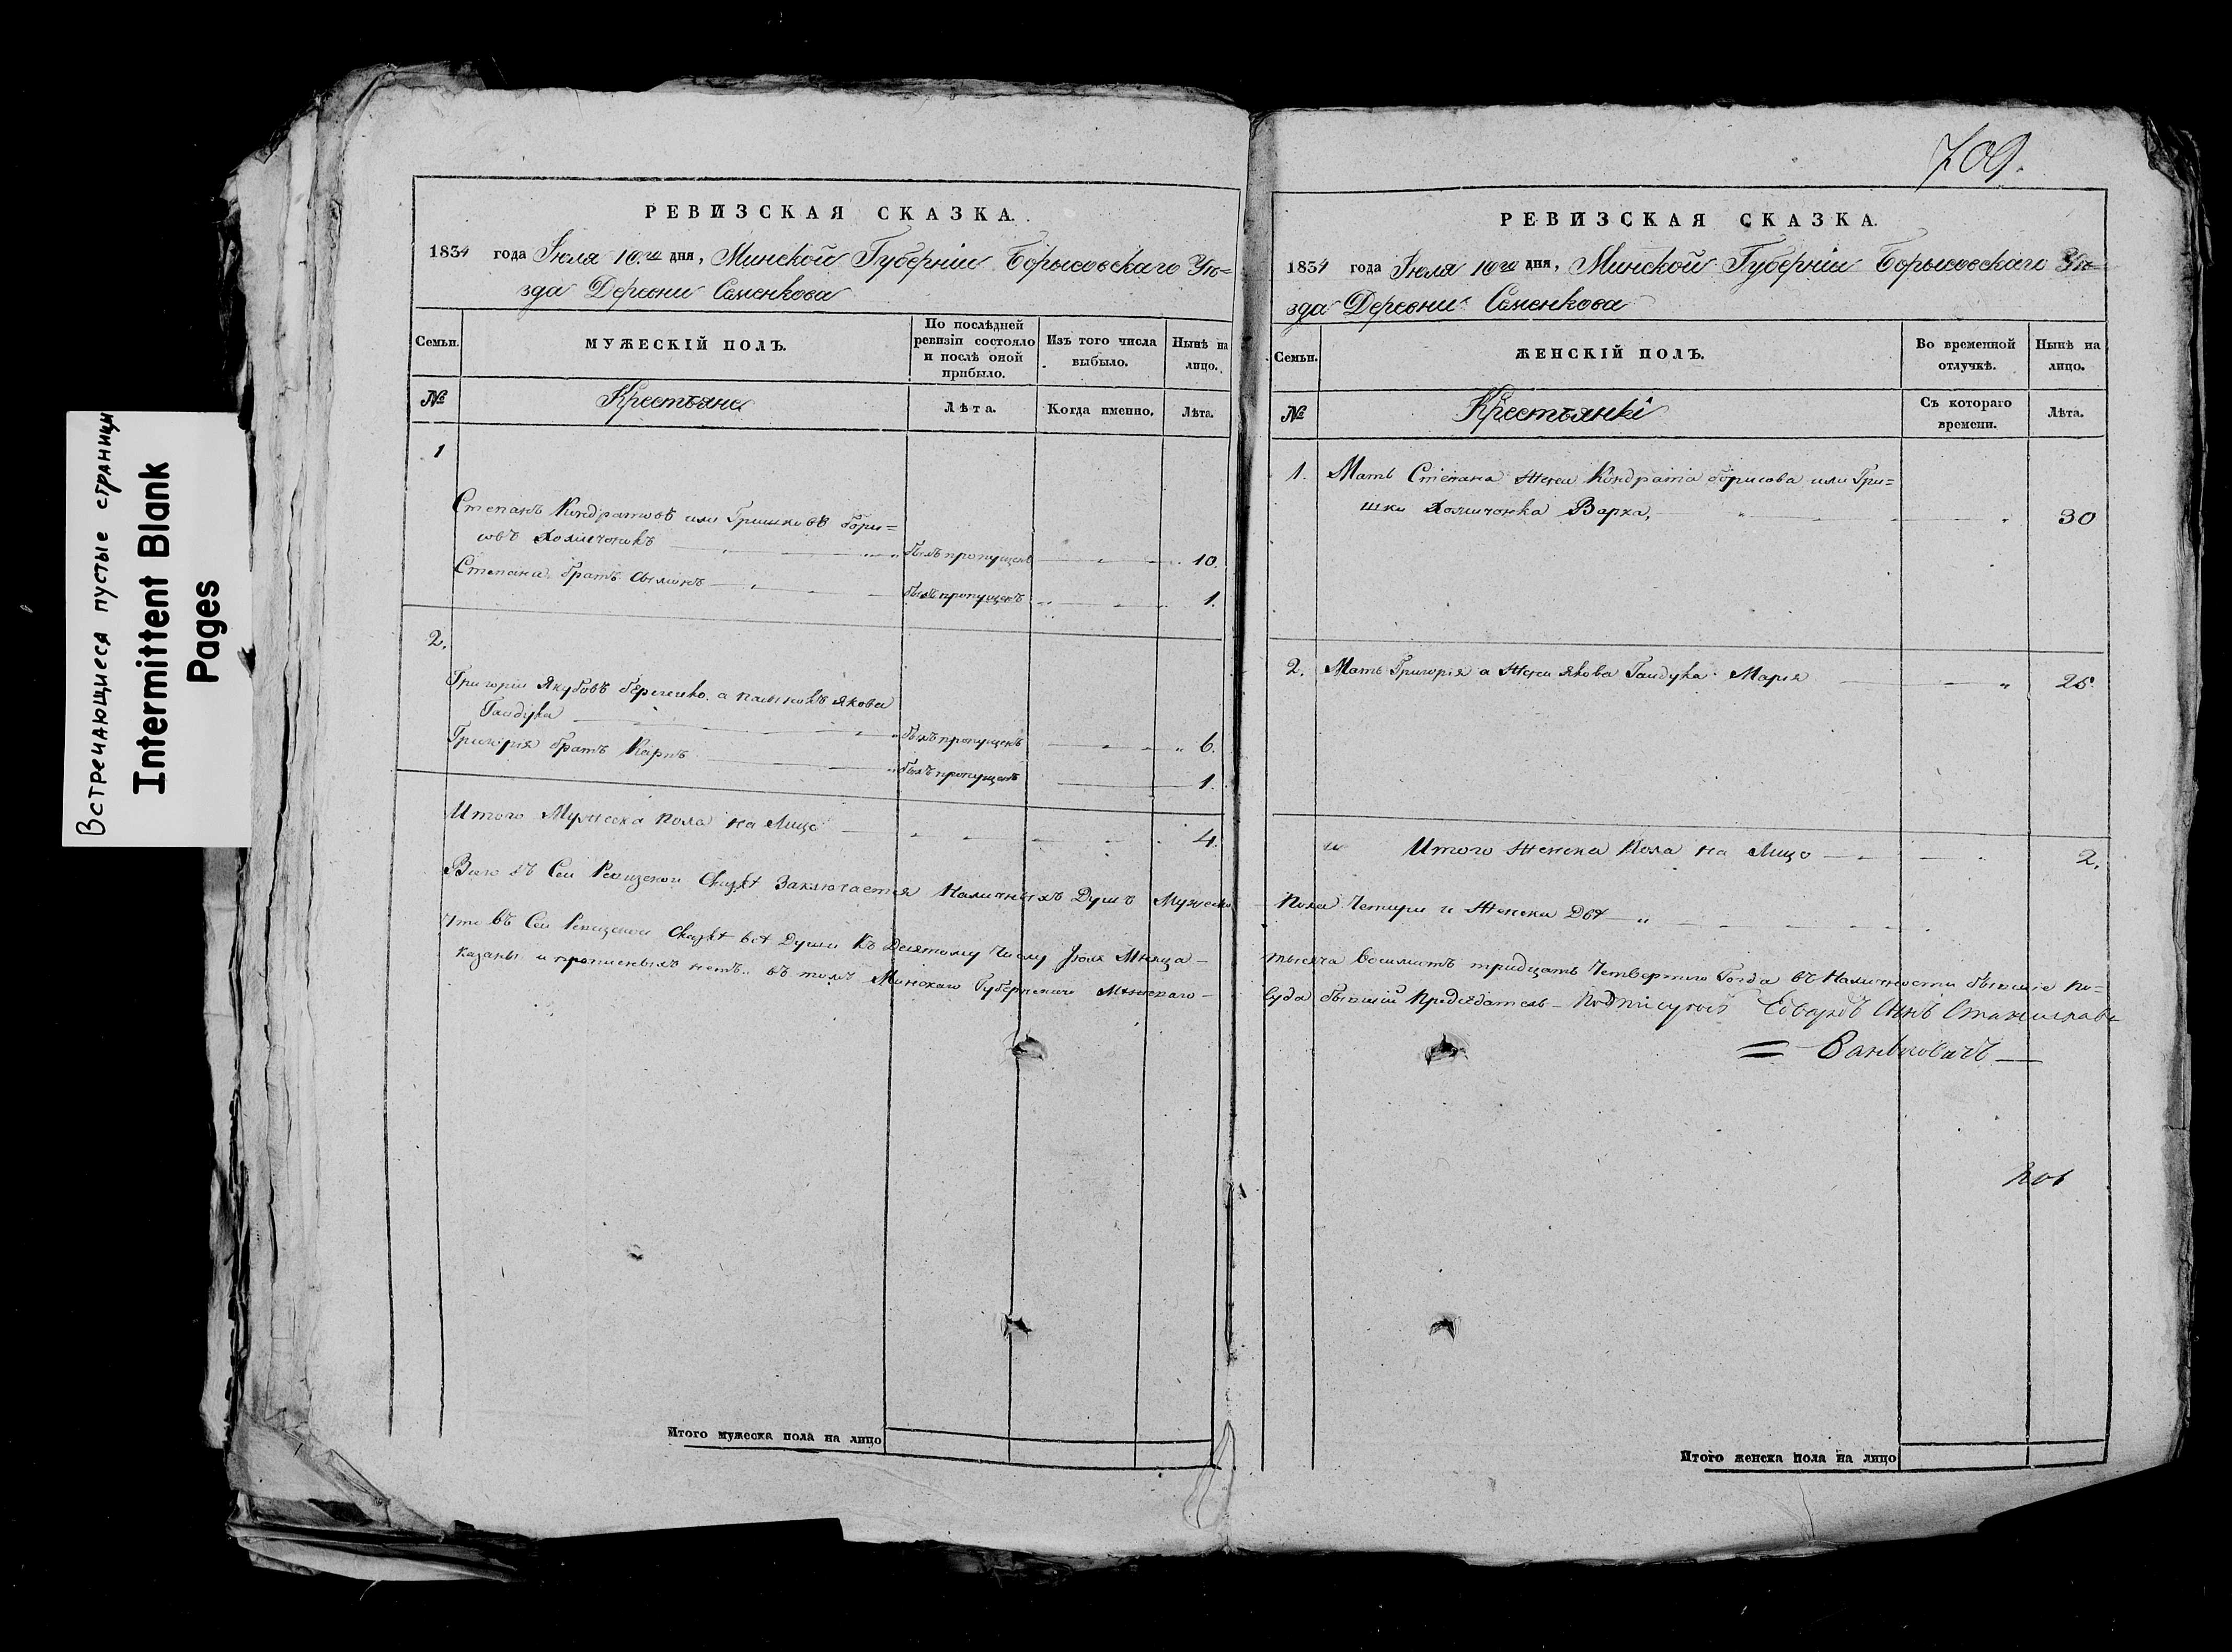 Встречающиеся пустые страницы
Intermittent Blank
Pages
РЕВИЗСКАЯ СКАЗКА.
1834 года Іюля 10го дня, Минской Губерніи Борысовскаго Уѣ=
зда Деревни Сменкова
Семьи.
МУЖЕСКІЙ ПОЛЪ.
По послѣдней
ревизіи состояло
и послѣ оной
прибыло.
Изъ того числа
выбыло.
Нынѣ на
лицо.
№
Крестьяне
Лѣта.
Когда именно.
Лѣта.
1
Степанъ Кондратовъ или Гришковъ бори=
совъ Хомичонокъ былъ пропущенъ 10.
Степана братъ былъ пропущенъ 1.
2.
Григорій Якубовъ а Якова
Гайдука былъ пропущенъ 6.
Григорія братъ Карпъ былъ пропущенъ 1.
Итого Мужеска пола на Лицо 4.
Всего въ Сей Ревизской Сказкѣ Заключается Наличныхъ Душъ Мужеска
Что въ Сей Ревизской Сказкѣ всѣ Души Къ Десятому Числу Іюля Мѣсяца
казаны и прописныхъ нетъ. въ томъ Минскаго Губернскаго
Итого мужеска пола на лицо
709.
РЕВИЗСКАЯ СКАЗКА.
1834 года Іюля 10го дня, Минской Губерніи Борысовскаго Уѣ=
зда Деревни Сменкова
Семьи.
ЖЕНСКІЙ ПОЛЪ.
Во временной
отлучкѣ.
Нынѣ на
лицо.
№
Крестьянкі
Съ котораго
времени.
Лѣта.
1. Мать Степана Жена Кондратіа борисова или Гри=
шки Хомичонка Варка, 30
2. Мать Григорія а Жена Якова Гайдука Марія 25.
Итого Женска Пола на Лицо 2.
Пола Четыри и Женска Двѣ
тысяча восимсотъ тридцать Четвертого Года въ Наличности бывшіе по=
Суда бывшій Предсѣдатель Подписуюсь Едвардъ Сынъ Станислава
= Ваньковичъ
Итого женска пола на лицо